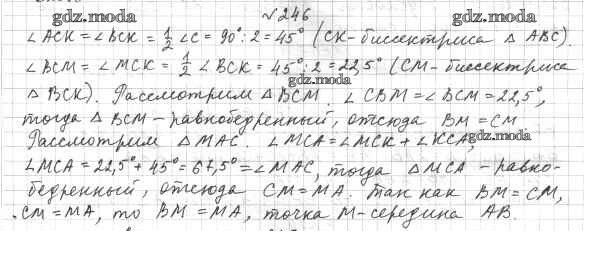 gdz.moda №246 gdz.moda
∠ACK = ∠BCK = 1/2 ∠C = 90° : 2 = 45° (CK - биссектриса △ ABC).
∠BCM = ∠MCK = 1/2 ∠BCK = 45° : 2 = 22,5° (CM - биссектриса
gdz.moda
△ BCK). Рассмотрим △ BCM. ∠CBM = ∠BCM = 22,5°,
тогда △ BCM - равнобедренный, отсюда BM = CM
Рассмотрим △ MAC. ∠MCA = ∠MCK + ∠KCA,
gdz.moda
∠MCA = 22,5° + 45° = 67,5° = ∠MAC, тогда △ MCA - равно-
бедренный, отсюда CM = MA. Так как BM = CM,
CM = MA, то BM = MA, точка M - середина AB.